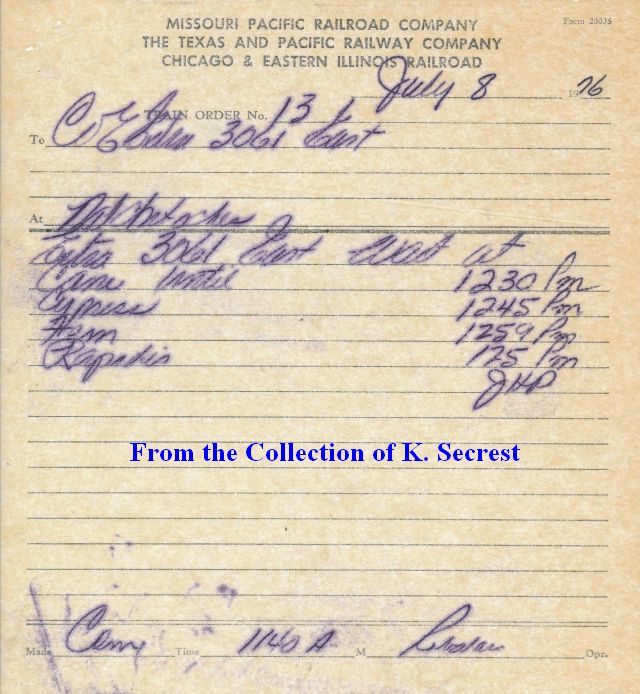 MISSOURI PACIFIC RAILROAD COMPANY
THE TEXAS AND PACIFIC RAILWAY COMPANY
CHICAGO & EASTERN ILLINOIS RAILROAD
Form 20035
July 8 1976
TRAIN ORDER No. 131
To C&E Extra 3061 East
At Natchitoches
Extra 3061 East wait at
Cane until 1230 Pm
Cypress 1245 Pm
1259 Pm
Rapides 125 Pm
JHP
From the Collection of K. Secrest
Made Com Time 1140 A M Opr.